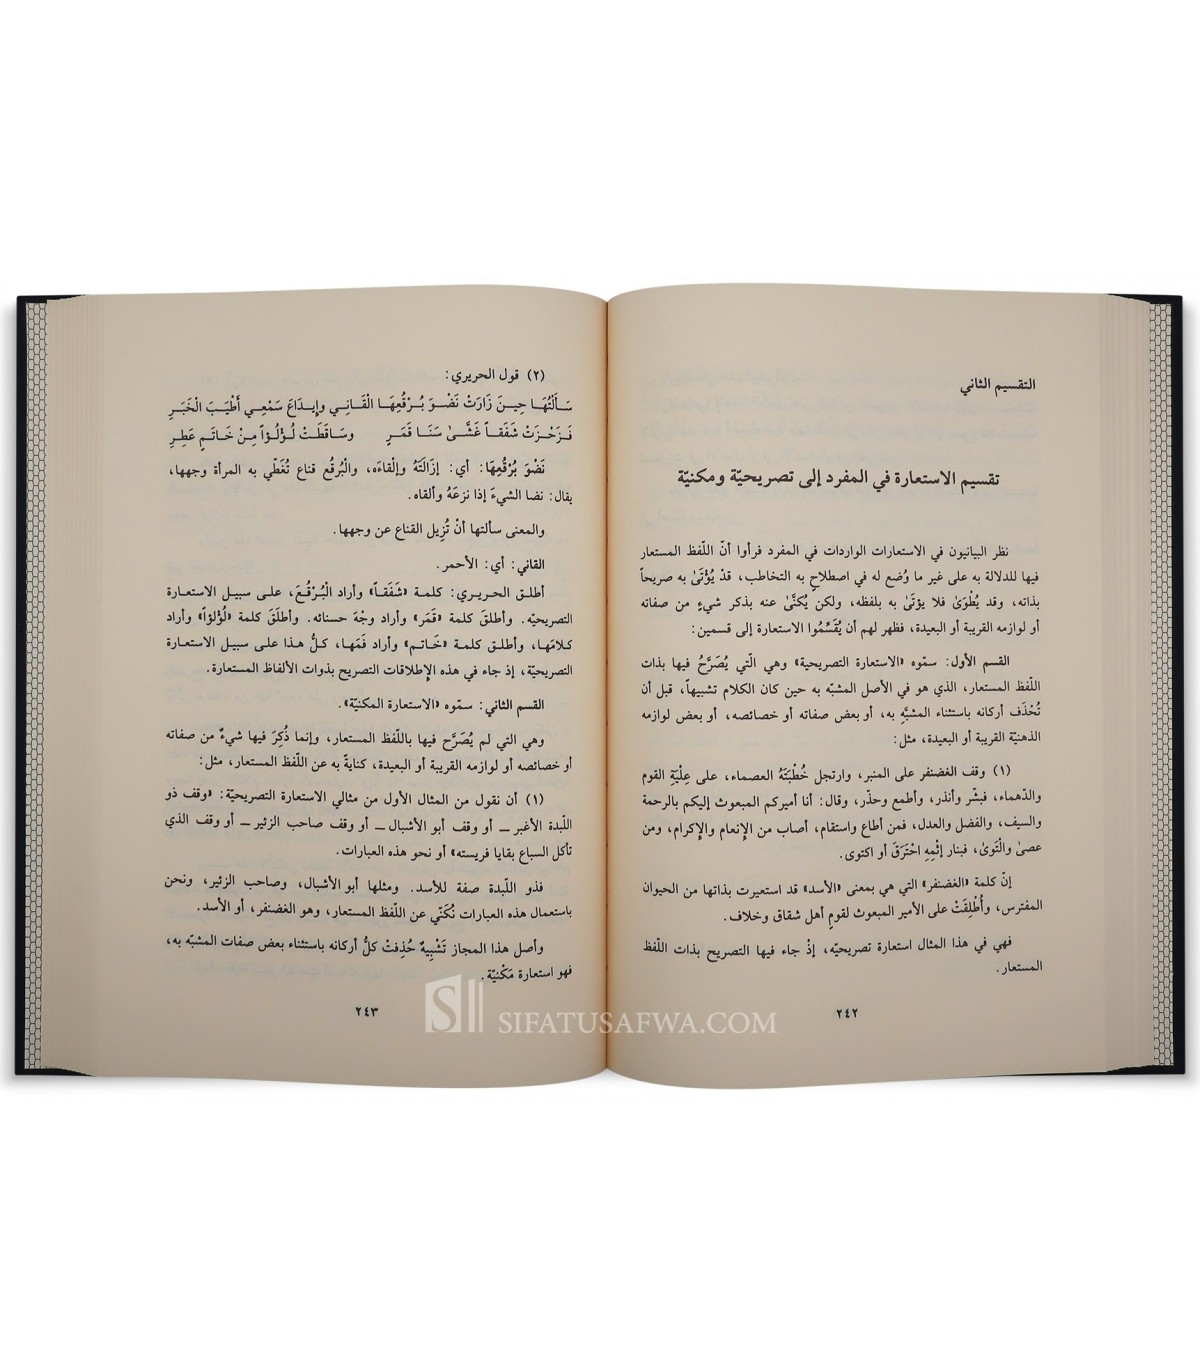 التقسيم الثاني
تقسيم الاستعارة في المفرد إلى تصريحيّة ومكنيّة
نظر البيانيون في الاستعارات الواردات في المفرد فرأوا أنّ اللّفظ المستعار
فيها للدلالة به على غير ما وُضع له في اصطلاحٍ به التخاطب، قدْ يُؤْتَىٰ به صريحاً
بذاته، وقد يُطْوَىٰ فلا يؤتَىٰ به بلفظه، ولكن يُكنَّىٰ عنه بذكر شيءٍ من صفاته
أو لوازمه القريبة أو البعيدة، فظهر لهم أن يُقَسِّمُوا الاستعارة إلى قسمين:
القسم الأول: سمّوه «الاستعارة التصريحية» وهي الّتي يُصَرَّحُ فيها بذات
اللّفظ المستعار، الذي هو في الأصل المشبّه به حين كان الكلام تشبيهاً، قبل أن
تُحْذَف أركانه باستثناء المشبَّهِ به، أو بعض صفاته أو خصائصه، أو بعض لوازمه
الذهنيّة القريبة أو البعيدة، مثل:
(١) وقف الغضنفر على المنبر، وارتجل خُطْبَتَهُ العصماء، على عِلْيَةِ القوم
والدّهماء، فبشّر وأنذر، وأطمع وحذّر، وقال: أنا أميركم المبعوث إليكم بالرحمة
والسيف، والفضل والعدل، فمن أطاع واستقام، أصاب من الإنعام والإكرام، ومن
عصىٰ والْتَوىٰ، فبنار إثْمِهِ احْتَرَقَ أو اكتوى.
إنّ كلمة «الغضنفر» التي هي بمعنى «الأسد» قد استعيرت بذاتها من الحيوان
المفترس، وأُطْلِقَتْ على الأمير المبعوث لقومٍ أهل شقاق وخلاف.
فهي في هذا المثال استعارة تصريحيّه، إذْ جاء فيها التصريح بذات اللّفظ
المستعار.
٢٤٢
(٢) قول الحريري:
سَأَلْتُهَا حِينَ زَارَتْ نَضْوَ بُرْقُعِهَا الْقَانِي وإيدَاعَ سَمْعِي أَطْيَبَ الْخَبَرِ
فَزَحْزَحَتْ شَفَقاً غَشَّىٰ سَنَا قَمَرٍ وسَاقَطَتْ لُؤْلُؤاً مِنْ خَاتمٍ عَطِرِ
نَضْوَ بُرْقُعِهَا: أي: إزَالَتَهُ وإلْقاءَه، والْبُرقُع قناع تُغَطّي به المرأة وجهها،
يقال: نضا الشيءَ إذا نزعَهُ وألقاه.
والمعنى سألتها أنْ تُزِيل القناع عن وجهها.
القاني: أي: الأحمر.
أطلق الحريري: كلمة «شَفَقاً» وأراد الْبُرْقُعَ، على سبيل الاستعارة
التصريحيّه. وأطلقَ كلمة «قَمَر» وأراد وجْهَ حسنائه. وأطلَقَ كلمة «لُؤْلؤاً» وأراد
كلامَها، وأطلق كلمة «خَاتم» وأراد فَمَها، كلُّ هذا على سبيل الاستعارة
التصريحيّة، إذ جاء في هذه الإطلاقات التصريح بذوات الألفاظ المستعارة.
القسم الثاني: سمّوه «الاستعارة المكنيّة».
وهي التي لم يُصَرَّح فيها باللّفظ المستعار، وإنما ذُكِرَ فيها شيءٌ من صفاته
أو خصائصه أو لوازمه القريبة أو البعيدة، كنايةً به عن اللّفظ المستعار، مثل:
(١) أن نقول من المثال الأول من مثالي الاستعارة التصريحيّة: «وقف ذو
اللّبدة الأغبر ــ أو وقف أبو الأشبال ــ أو وقف صاحب الزئير ــ أو وقف الذي
تأكل السباع بقايا فريسته» أو نحو هذه العبارات.
فذو اللّبدة صفة للأسد. ومثلها أبو الأشبال، وصاحب الزئير، ونحن
باستعمال هذه العبارات نُكَنّي عن اللّفظ المستعار، وهو الغضنفر، أو الأسد.
وأصل هذا المجاز تَشْبِيهٌ حُذِفتْ كلُّ أركانه باستثناء بعض صفات المشبّه به،
فهو استعارة مَكْنيّة.
٢٤٣
SIFATUSAFWA.COM